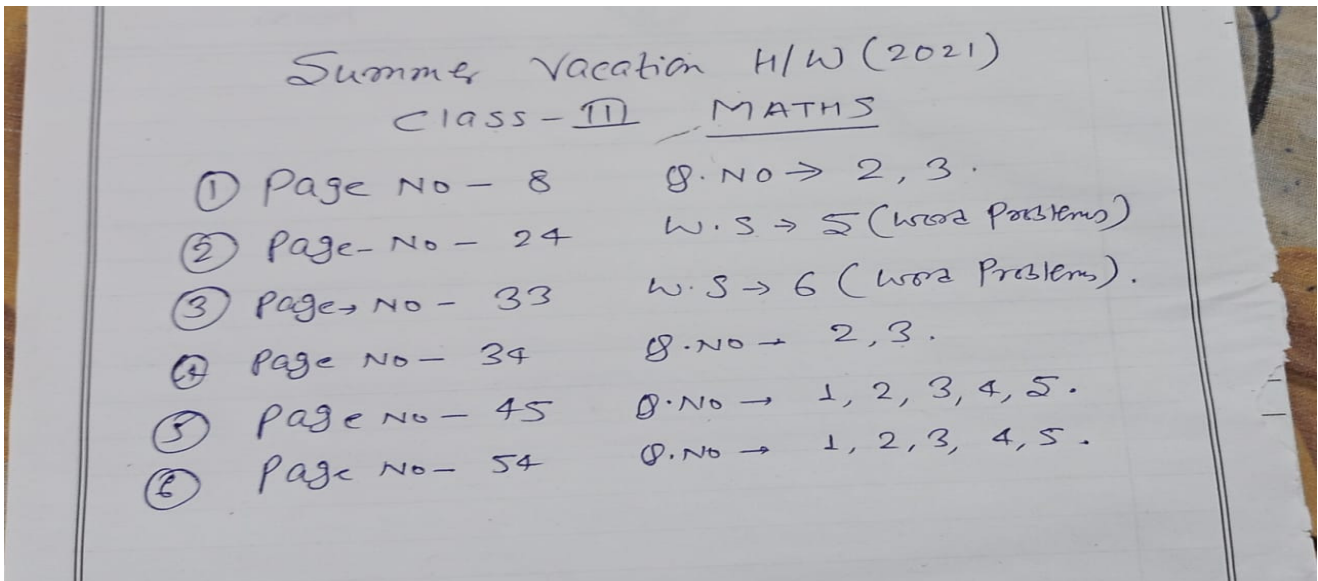 Summer Vacation H/W (2021)
Class - III MATHS
① Page No - 8 Q. No → 2, 3.
② Page - No - 24 W.S → 5 (Word Problems)
③ Page, No - 33 W.S → 6 (Word Problems).
④ Page No - 34 Q. No → 2, 3.
⑤ Page No - 45 Q. No → 1, 2, 3, 4, 5.
⑥ Page No - 54 Q. No → 1, 2, 3, 4, 5.